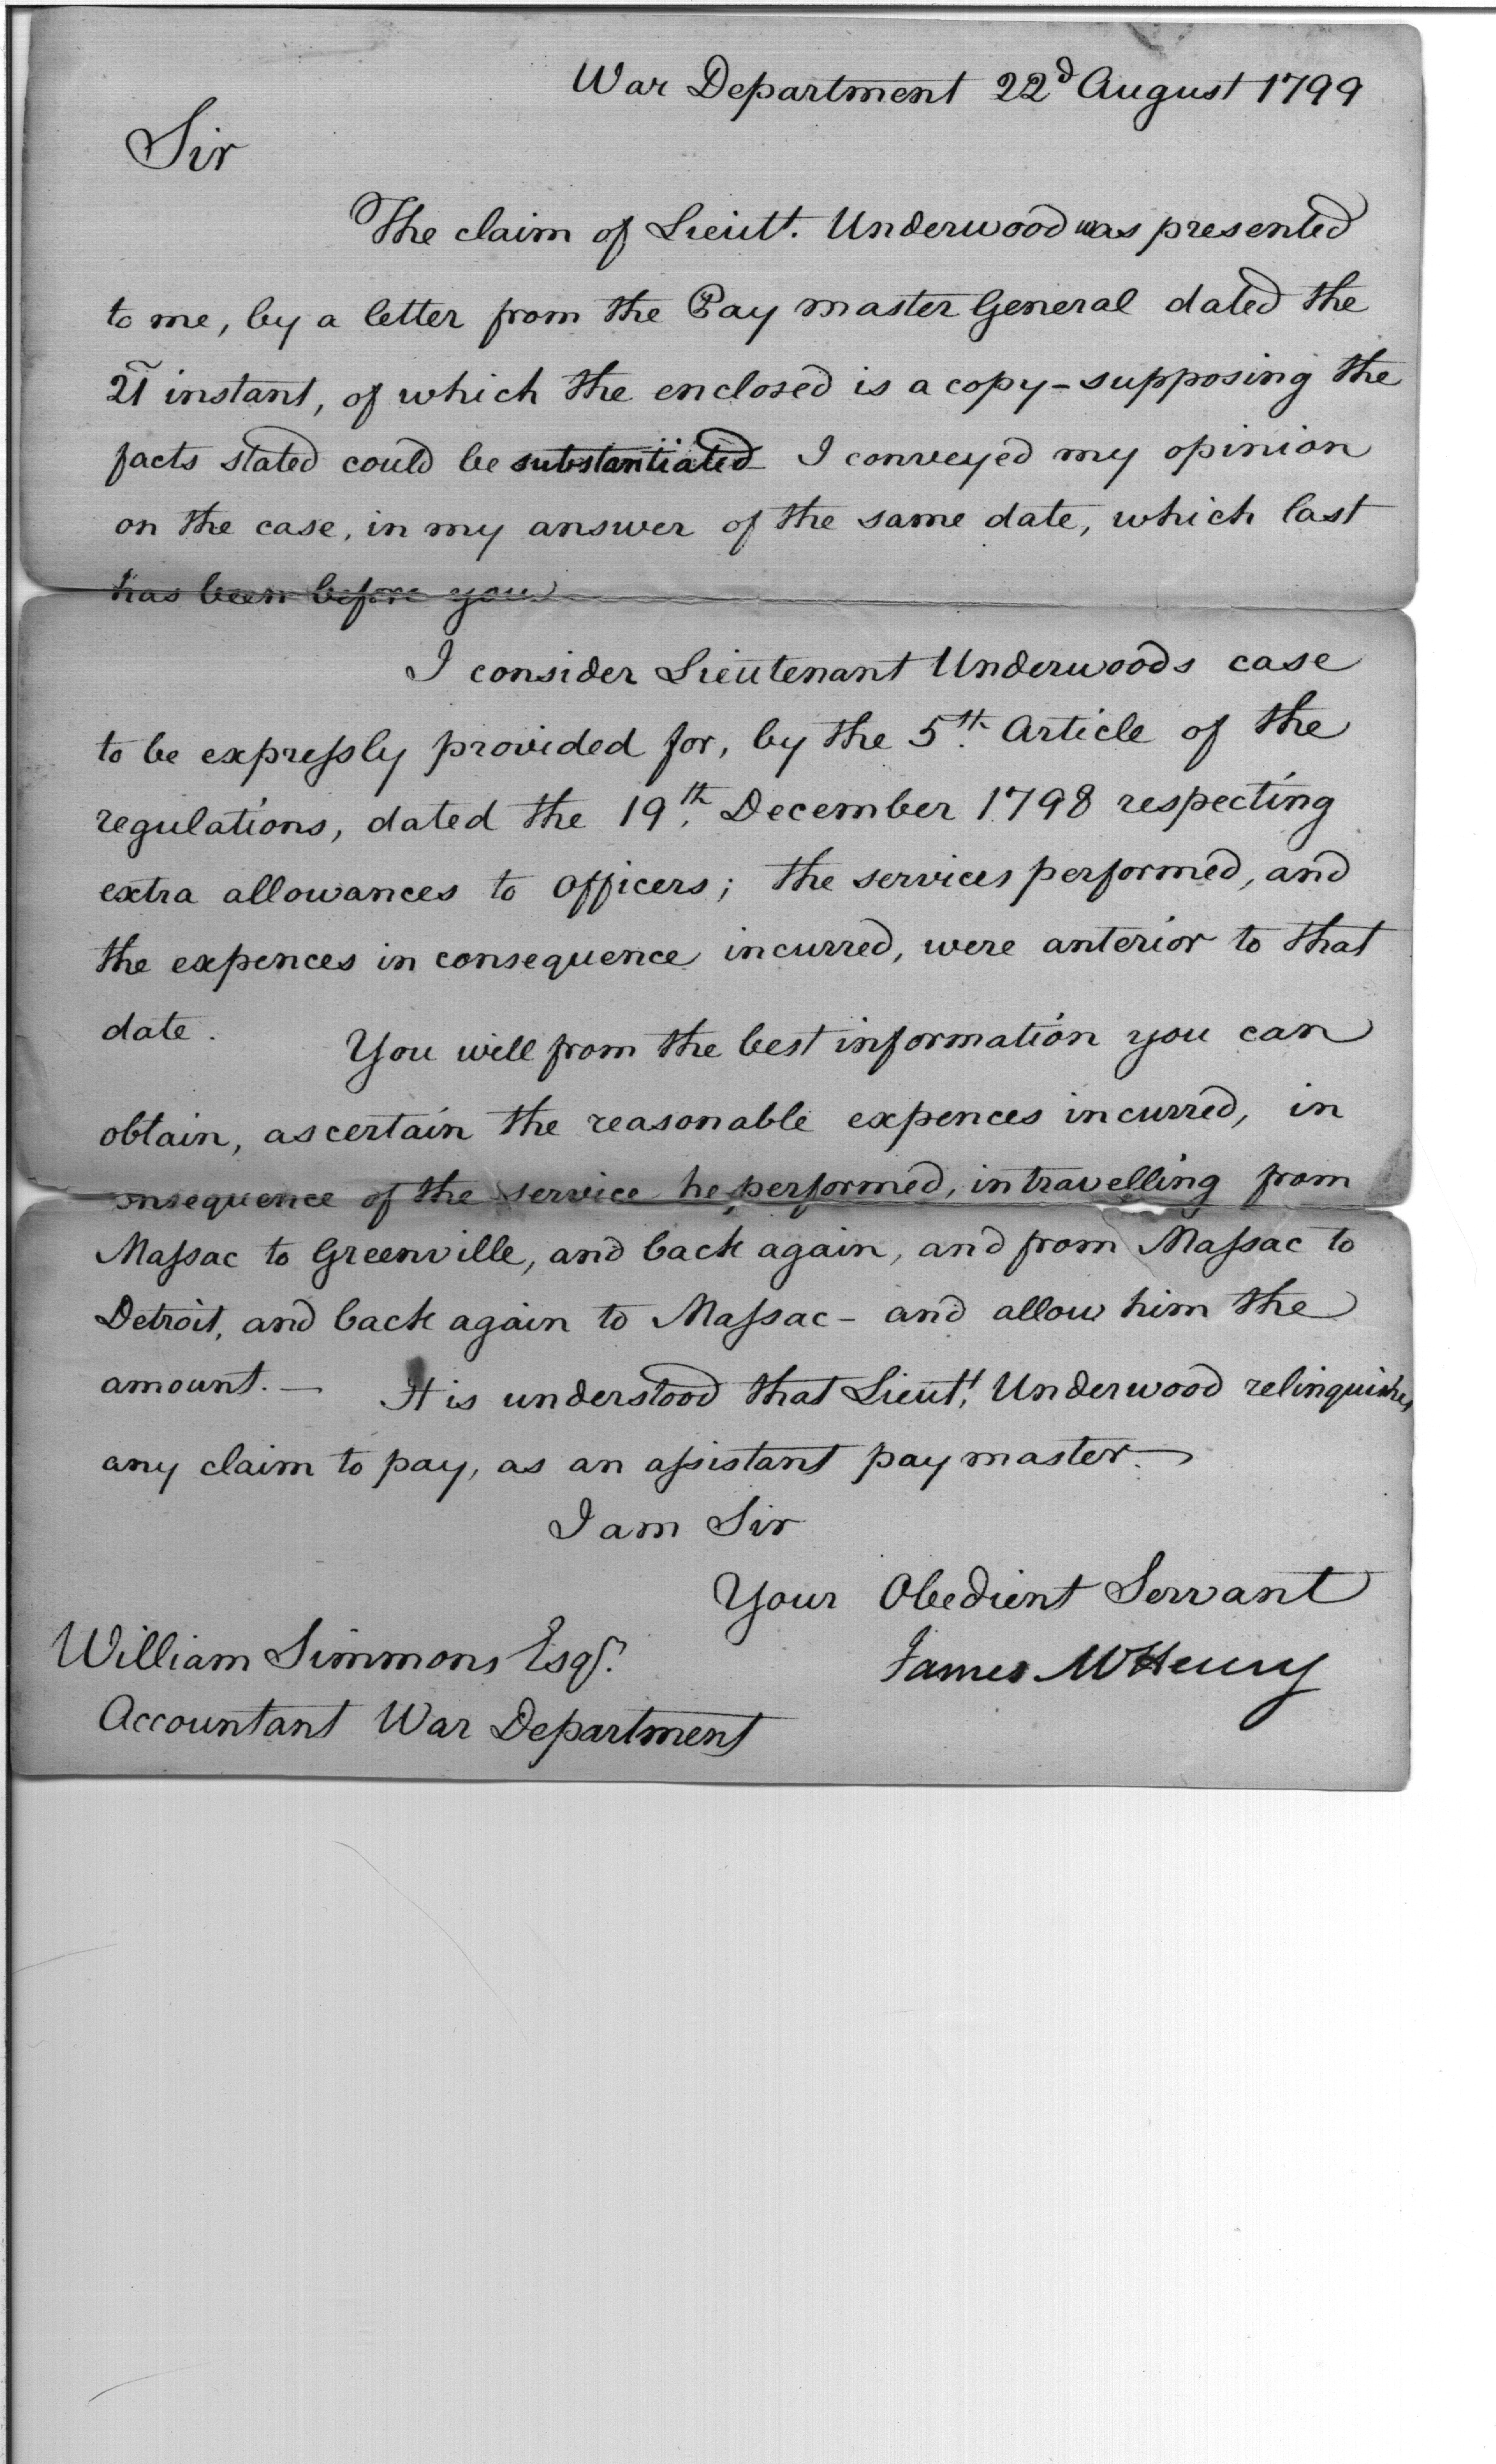 War Department 22d August 1799
Sir
The claim of Lieutt. Underwood was presented
to me, by a letter from the Pay master General dated the
21 instant, of which the enclosed is a copy - supposing the
facts stated could be substantiated I conveyed my opinion
on the case, in my answer of the same date, which last
has been before you
I consider Lieutenant Underwoods case
to be expressly provided for, by the 5th. Article of the
regulations, dated the 19th. December 1798 respecting
extra allowances to officers; the services performed, and
the expences in consequence incurred, were anterior to that
date.
You will from the best information you can
obtain, ascertain the reasonable expences incurred, in
onsequence of the service he performed, in travelling from
Massac to Greenville, and back again, and from Massac to
Detroit, and back again to Massac - and allow him the
amount. — It is understood that Lieutt. Underwood relinquishes
any claim to pay, as an assistant pay master. —
I am Sir
Your Obedient Servant
James McHenry
William Simmons Esqr.
Accountant War Department